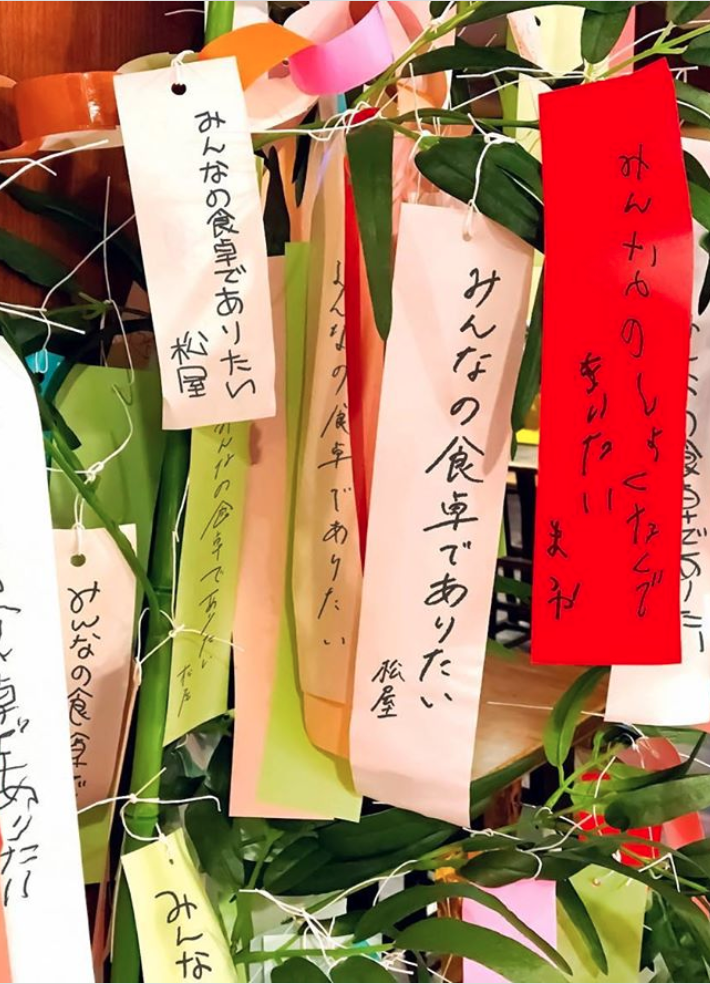 みんなの食卓でありたい
松屋
みんなの食卓でありたい
松屋
みんなの食卓でありたい
みんなの食卓でありたい
松屋
みんなのしょくたくで
ありたい
みんなの食卓で
食卓でありたい
みんな